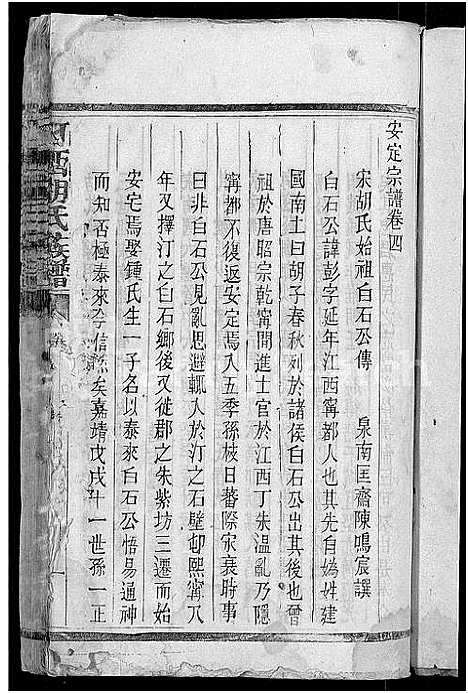 安定宗譜卷四
宋胡氏始祖白石公傳　泉南匡齋陳鳴宸譔
白石公諱彭字延年江西寧都人也其先自媯姓建
國南土曰胡子春秋列於諸侯白石公出其後也曾
祖於唐昭宗乾寧間進士官於江西丁朱溫亂乃隱
寧都不復返安定焉入五季孫枝日蕃際宋衰時事
日非白石公見亂思避輒入於汀之石壁卹熙寧八
年又擇汀之白石鄉後又徙郡之朱紫坊三遷而始
安宅焉娶鍾氏生一子名以泰來白石公悟易通神
而知否極泰來孚信然矣嘉靖戊戌十一世孫一正
西胡氏族譜